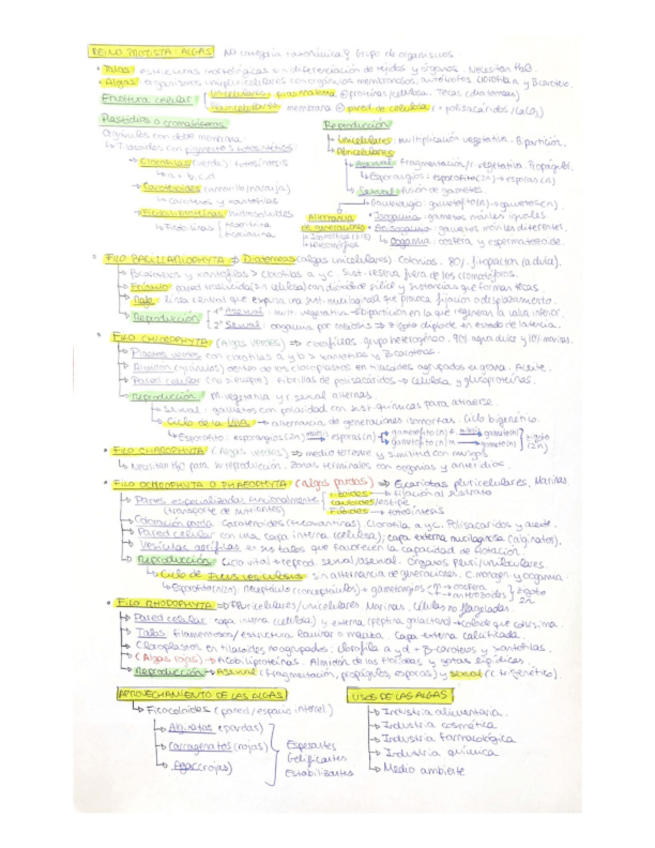 REINO PROTISTA: ALGAS NO categoría taxonómica? Grupo de organismos.
• Talos estructuras morfológicas sin diferenciación de tejidos y órganos. Necesitan H2O.
• Algas organismos uni/pluricelulares con orgánulos membranosos, autótrofos. Clorofila a y B caroteno.
Envoltura celular
Unicelulares plasmalema ⊕ proteínas/celulosa. Tecas (diatomeas)
Pluricelulares membrana ⊕ pared de celulosa (+ polisacáridos/CaCO3)
Plastidios o cromatóforos
Orgánulos con doble membrana
↳ Tilacoides con pigmentos fotosintéticos:
→ Clorofilas (verde): fotosíntesis
↳ a + b, c, d
→ Carotenoides (amarillo/naranja)
↳ carotenos y xantofilas
→ Ficobiliproteínas hidrosolubles
↳ Ficobilinas
Reproducción
↳ Unicelulares: multiplicación vegetativa. Bipartición.
↳ Pluricelulares
↳ Asexual: fragmentación/r. vegetativa. Propágulos.
↳ Esporangios: esporofito (2n) → esporas (n)
↳ Sexual: fusión de gametos.
↳ Gametangio: gametofito (n) → gametos (n)
• Isogamia: gametos móviles iguales
• Anisogamia: gametos móviles diferentes.
↳ Oogamia: oosfera y espermatozoide.
Alternancia de generaciones
• FILO BACILLARIOPHYTA ⇒ Diatomeas (algas unicelulares) Colonias. 80% fitoplancton (a. dulce).
↳ B carotenos y xantofilas > clorofilas a y c. Sust. reserva fuera de los cromatóforos.
↳ Frústulo pared translúcida (sin celulosa) con dióxido de sílice y sustancias que forman tecas.
↳ Rafe: línea central que expulsa una sust. mucilaginosa que provoca fijación o desplazamiento.
↳ Reproducción
1º Asexual: mult. vegetativa → bipartición en la que regeneran la valva inferior.
2º Sexual: oogamia por meiosis ⇒ zigoto diploide en estado de latencia.
• FILO CHLOROPHYTA (Algas verdes) ⇒ clorofíceas. grupo heterogéneo. 90% agua dulce y 10% marinas.
↳ Plastos verdes con clorofilas a y b > xantofilas y B carotenos.
↳ Almidón (gránulos) dentro de los cloroplastos en tilacoides agrupados en grana. Aceite.
↳ Pared celular (no siempre) Fibrillas de polisacáridos → celulosa y glucoproteínas.
↳ Reproducción: M. vegetativa y r. sexual alternas.
↳ Sexual: gametos con polaridad con sust. químicas para atraerse.
↳ Ciclo de la Ulva → alternancia de generaciones isomorfas. Ciclo bigenético.
↳ Esporofito: esporangios (2n) → esporas (n) gametofito (n) gameto (n) zigoto (2n)
gametofito (n) gameto (n)
• FILO CHAROPHYTA (Algas verdes) ⇒ medio terrestre y similitud con musgos
↳ Necesitan H2O para su reproducción. Zonas terminales con oogonios y anteridios.
• FILO OCHROPHYTA O PHAEOPHYTA (algas pardas) ⇒ Eucariotas pluricelulares. Marinas.
↳ Partes especializadas funcionalmente (transporte de nutrientes)
Rizoides → fijación al sustrato
Cauloides/estipe
Filoides → fotosíntesis
↳ Coloración parda Carotenoides (fucoxantinas) Clorofila a y c. Polisacáridos y aceite.
↳ Pared celular con una capa interna (celulosa); capa externa mucilaginosa (alginatos).
↳ Vesículas aeríferas en sus talos que favorecen la capacidad de flotación.
↳ Reproducción: Ciclo vital → reprod. sexual/asexual. Órganos pluri/uniloculares.
↳ Ciclo de Fucus vesiculosus: sin alternancia de generaciones. C. monogen. y oogamia.
↳ Esporofito (2n). Receptáculo (conceptáculos) → gametangios oosfera zigoto 2n
anterozoides
• FILO RHODOPHYTA ⇒ Pluricelulares/unicelulares Marinas. Células no flageladas.
↳ Pared celular capa interna (celulosa) y externa
↳ Talos filamentosos/estructura laminar o maciza. Capa externa calcificada.
↳ Cloroplastos en tilacoides no agrupados: clorofila a y d + B-carotenos y xantofilas.
↳ (Algas rojas) → Ficobiliproteínas. Almidón de las florídeas y gotas lipídicas.
↳ Reproducción → Asexual (fragmentación, propágulos, esporas) y sexual (c. trigenético).
APROVECHAMIENTO DE LAS ALGAS
↳ Ficocoloides (pared/espacio intercel)
↳ Alginatos (pardas)
↳ Carragenatos (rojas)
↳ Agar (rojas)
Espesantes
Gelificantes
Estabilizantes
USOS DE LAS ALGAS
↳ Industria alimentaria.
↳ Industria cosmética
↳ Industria farmacológica
↳ Industria química
↳ Medio ambiente